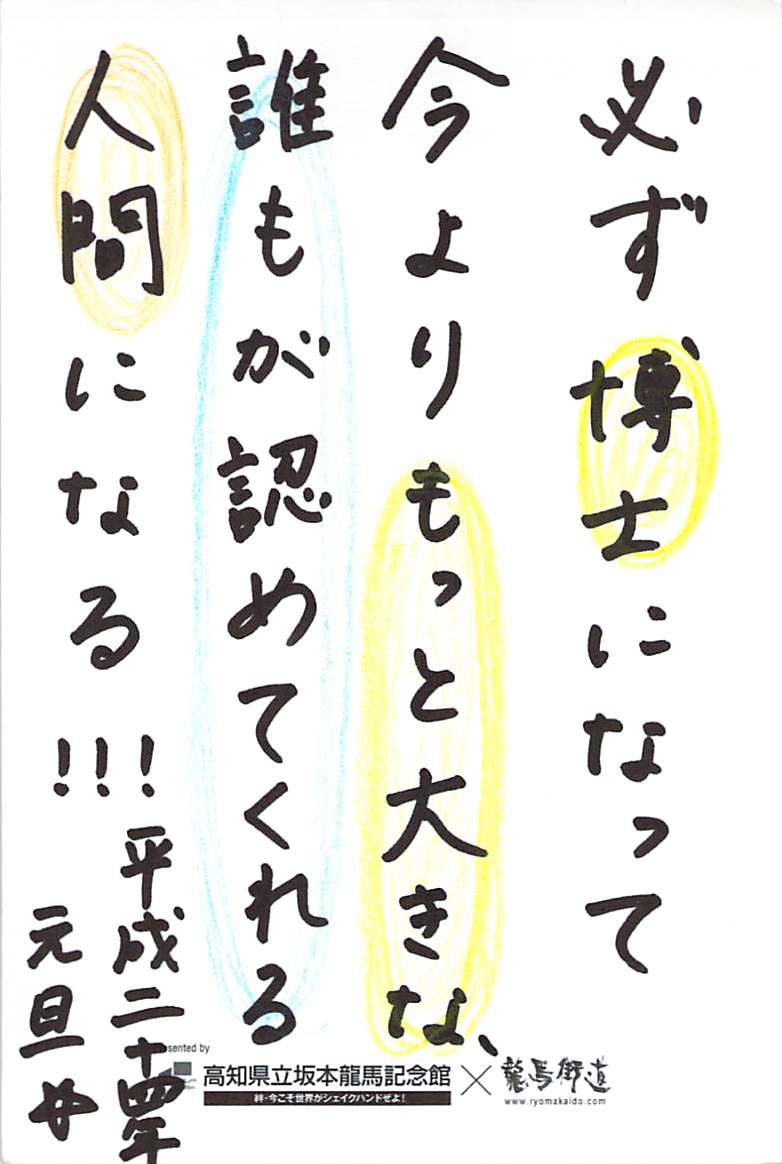 必ず博士になって
今よりもっと大きな、
誰もが認めてくれる
人間になる!!!
平成二十四年
元旦
sented by
高知県立坂本龍馬記念館×龍馬街道
絆・今こそ世界がシェイクハンドせよ!
www.ryomakaido.com